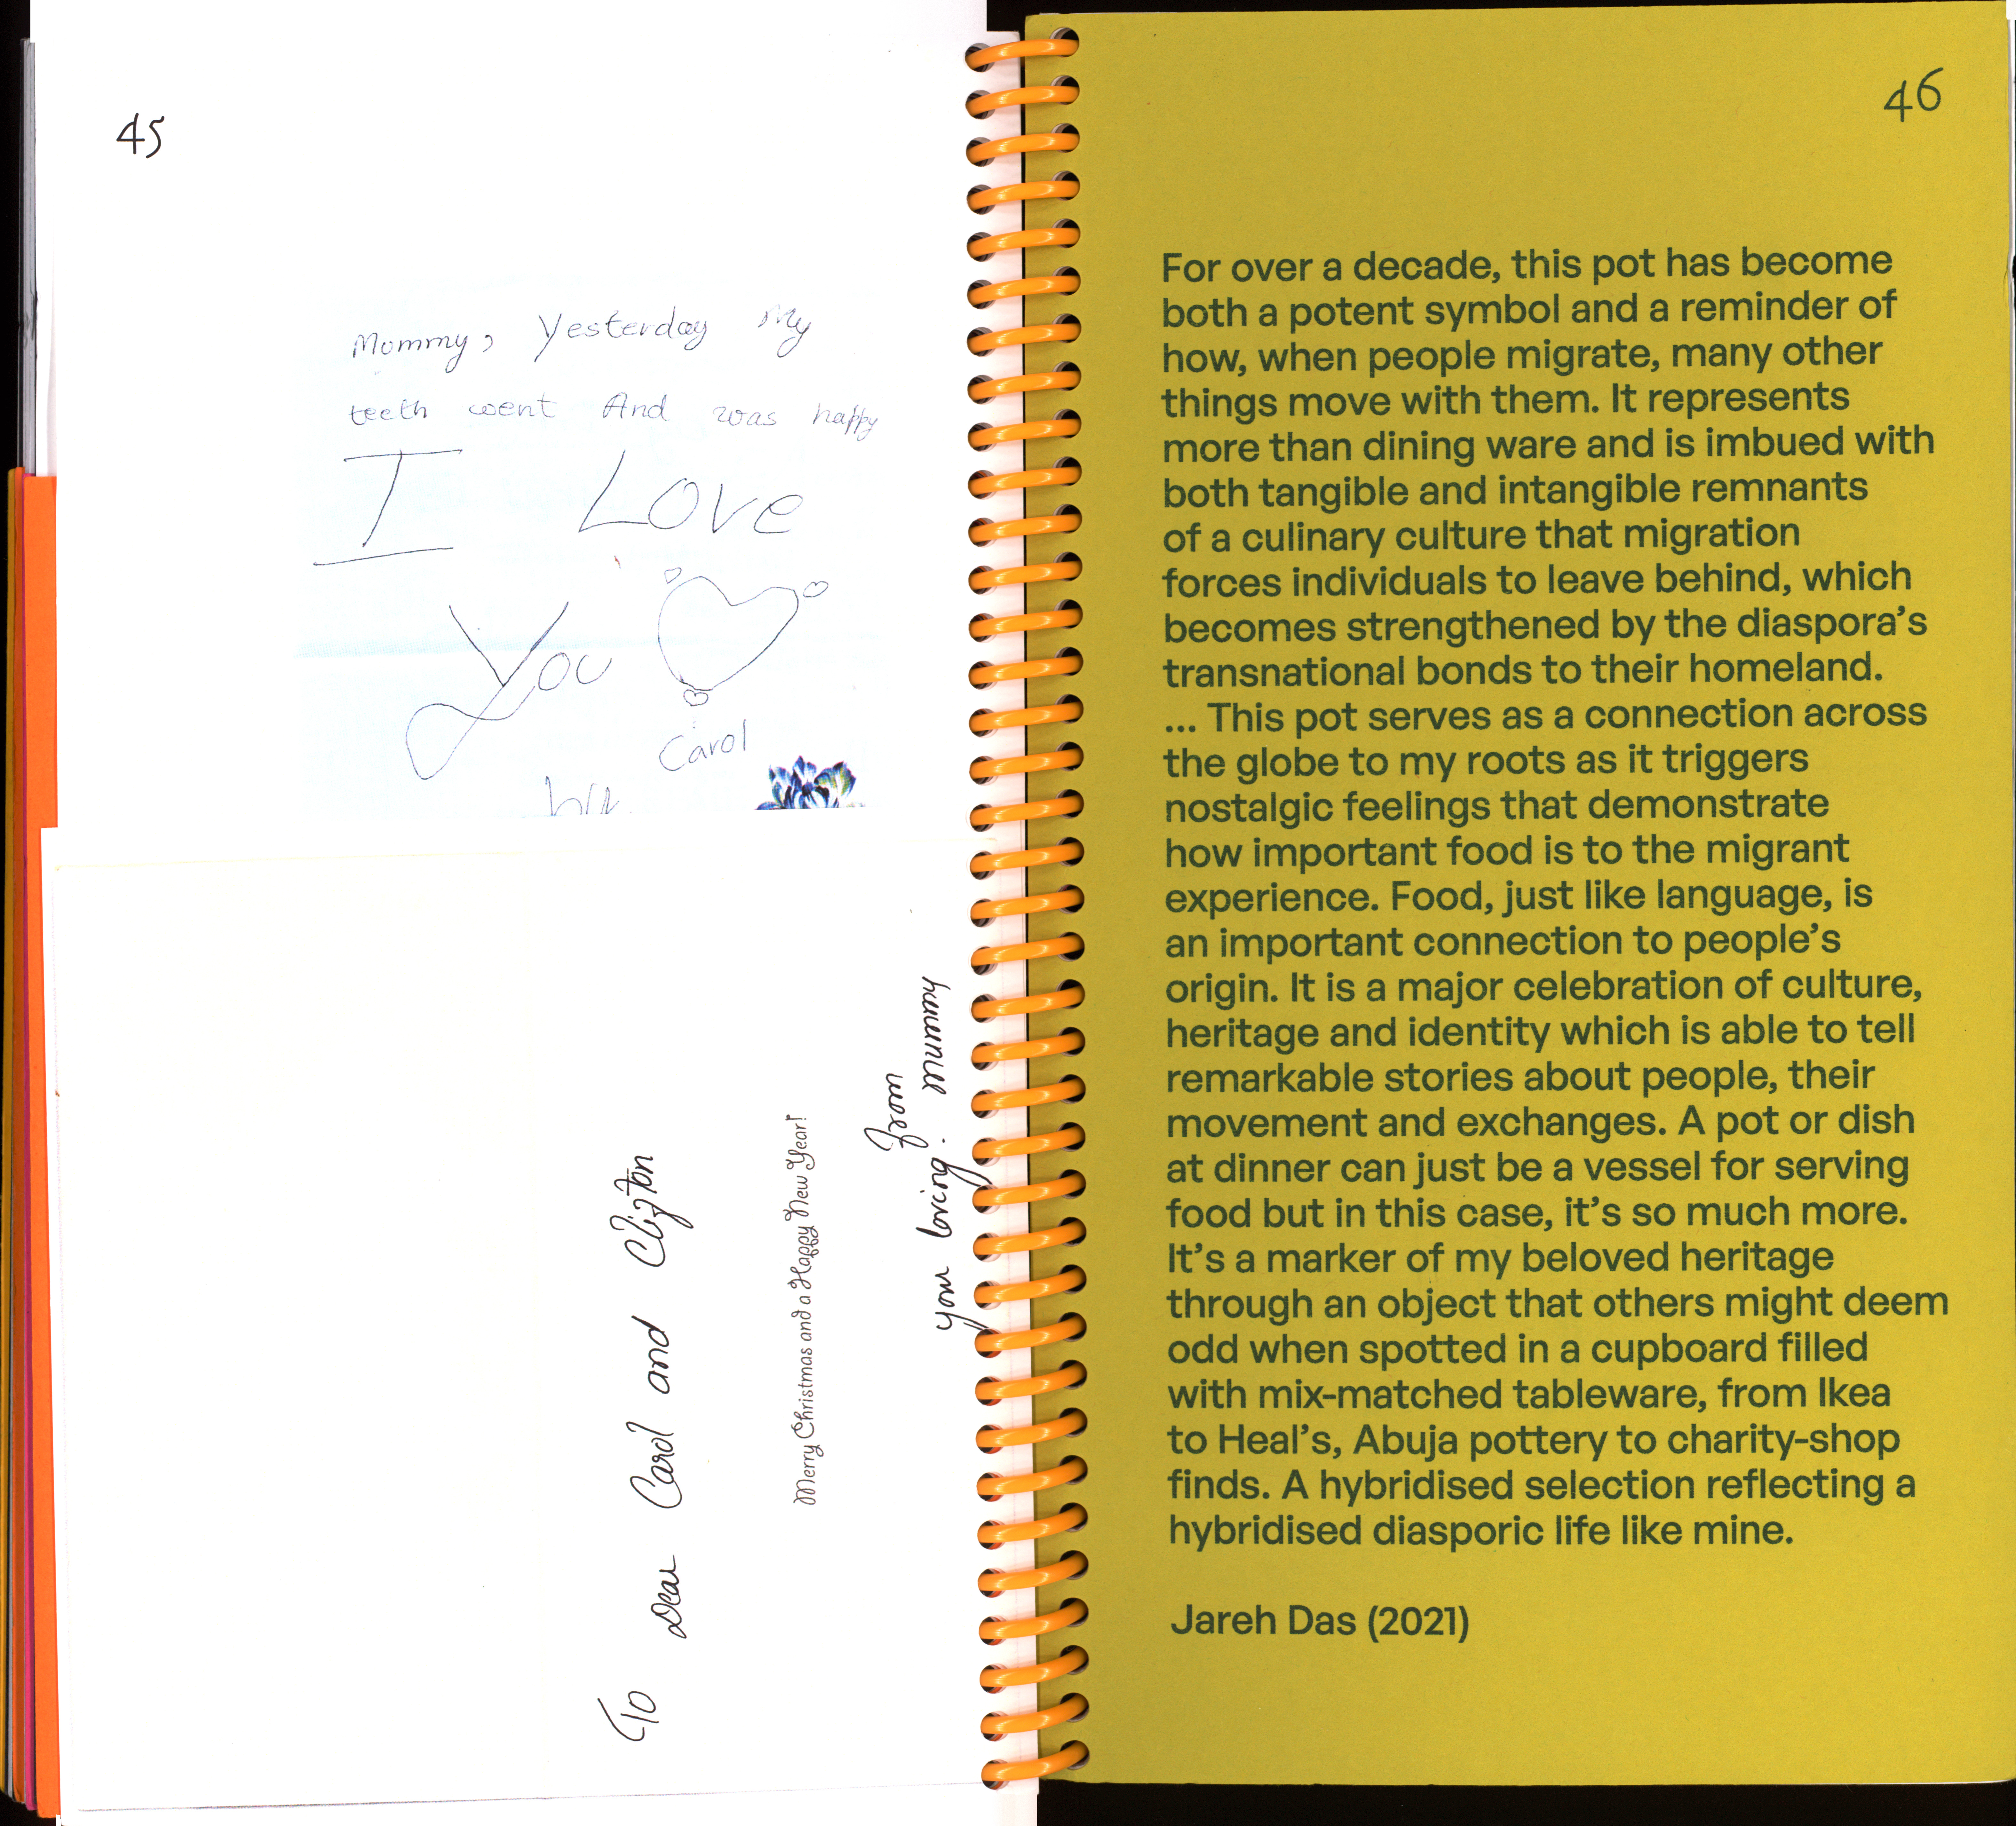 45
Mommy, Yesterday My
teeth went And was happy
I Love
You
Carol
To Dear Carol and Clifton
Merry Christmas and a Happy New Year!
From
your loving. mummy
46
For over a decade, this pot has become
both a potent symbol and a reminder of
how, when people migrate, many other
things move with them. It represents
more than dining ware and is imbued with
both tangible and intangible remnants
of a culinary culture that migration
forces individuals to leave behind, which
becomes strengthened by the diaspora’s
transnational bonds to their homeland.
... This pot serves as a connection across
the globe to my roots as it triggers
nostalgic feelings that demonstrate
how important food is to the migrant
experience. Food, just like language, is
an important connection to people’s
origin. It is a major celebration of culture,
heritage and identity which is able to tell
remarkable stories about people, their
movement and exchanges. A pot or dish
at dinner can just be a vessel for serving
food but in this case, it’s so much more.
It’s a marker of my beloved heritage
through an object that others might deem
odd when spotted in a cupboard filled
with mix-matched tableware, from Ikea
to Heal’s, Abuja pottery to charity-shop
finds. A hybridised selection reflecting a
hybridised diasporic life like mine.
Jareh Das (2021)